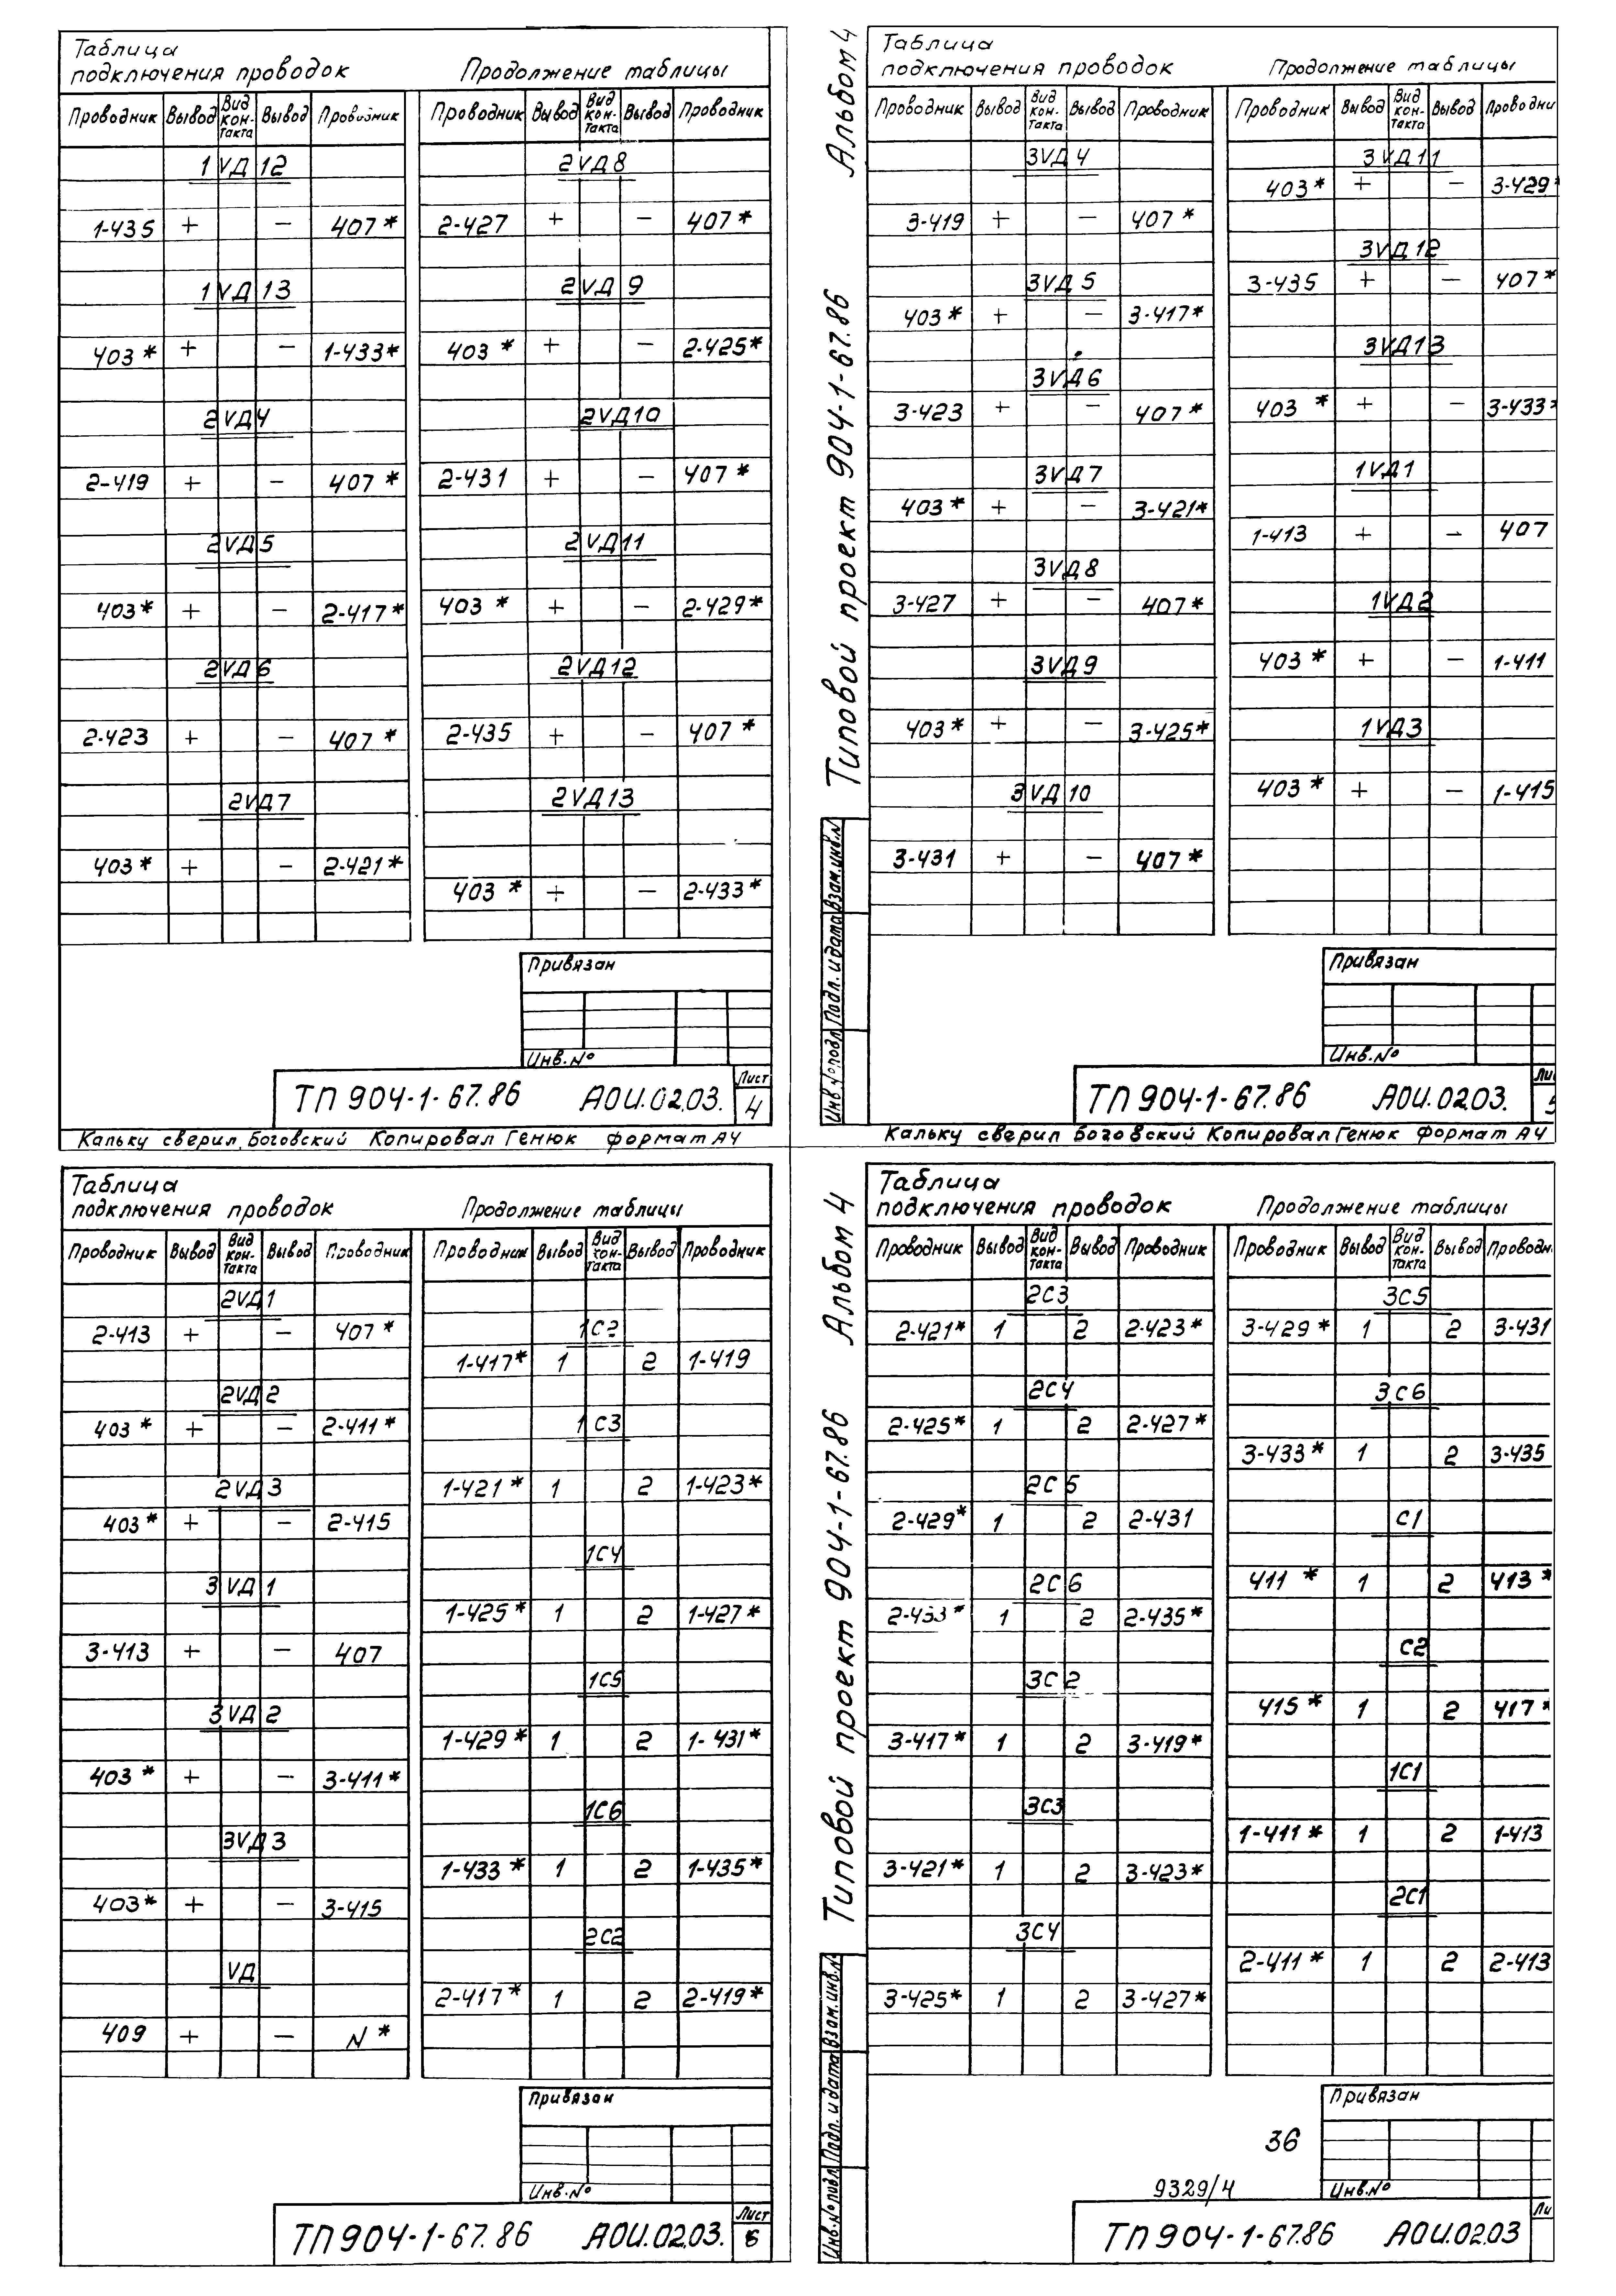 Таблица
подключения проводок Продолжение таблицы
Проводник Вывод Вид кон-такта Вывод Проводник Проводник Вывод Вид кон-такта Вывод Проводник
1VД12 2VД8
1-435 + - 407* 2-427 + - 407*
1VД13 2VД9
403* + - 1-433* 403* + - 2-425*
2VД4 2VД10
2-419 + - 407* 2-431 + - 407*
2VД5 2VД11
403* + - 2-417* 403* + - 2-429*
2VД6 2VД12
2-423 + - 407* 2-435 + - 407*
2VД7 2VД13
403* + - 2-421*
403* + - 2-433*
Привязан
Инв.№
ТП 904-1-67.86 АОИ.02.03. Лист 4
Кальку сверил Боговский Копировал Генюк формат А4
Альбом 4
Типовой проект 904-1-67.86
Инв.№подл. Подл. и дата Взам.инв.№
Таблица
подключения проводок Продолжение таблицы
Проводник Вывод Вид кон-такта Вывод Проводник Проводник Вывод Вид кон-такта Вывод Проводни
3VД4 3VД11
403* + - 3-429*
3-419 + - 407*
3VД12
3VД5 3-435 + - 407*
403* + - 3-417*
3VД13
3VД6
3-423 + - 407* 403* + - 3-433*
3VД7 1VД1
403* + - 3-421*
1-413 + - 407
3VД8
3-427 + - 407* 1VД2
3VД9 403* + - 1-411
403* + - 3-425* 1VД3
3VД10 403* + - 1-415
3-431 + - 407*
Привязан
Инв.№
ТП 904-1-67.86 АОИ.02.03. Ли 5
Кальку сверил Боговский Копировал Генюк формат А4
Таблица
подключения проводок Продолжение таблицы
Проводник Вывод Вид кон-такта Вывод Проводник Проводник Вывод Вид кон-такта Вывод Проводник
2VД1
2-413 + - 407* 1С2
1-417* 1 2 1-419
2VД2
403* + - 2-411* 1С3
2VД3 1-421* 1 2 1-423*
403* + - 2-415
1С4
3VД1
1-425* 1 2 1-427*
3-413 + - 407
1С5
3VД2
1-429* 1 2 1-431*
403* + - 3-411*
1С6
3VД3
1-433* 1 2 1-435*
403* + - 3-415
2С2
VД
2-417* 1 2 2-419*
409 + - N*
Привязан
Инв.№
ТП 904-1-67.86 АОИ.02.03. Лист 6
Альбом 4
Типовой проект 904-1-67.86
Инв.№подл. Подл. и дата Взам.инв.№
Таблица
подключения проводок Продолжение таблицы
Проводник Вывод Вид кон-такта Вывод Проводник Проводник Вывод Вид кон-такта Вывод Проводн
2С3 3С5
2-421* 1 2 2-423* 3-429* 1 2 3-431
2С4 3С6
2-425* 1 2 2-427*
3-433* 1 2 3-435
2С5
2-429* 1 2 2-431 С1
2С6 411* 1 2 413*
2-433* 1 2 2-435*
С2
3С2
415* 1 2 417*
3-417* 1 2 3-419*
1С1
3С3
1-411* 1 2 1-413
3-421* 1 2 3-423*
2С1
3С4
2-411* 1 2 2-413
3-425* 1 2 3-427*
Привязан
36
9329/4 Инв.№
ТП 904-1-67.86 АОИ.02.03 Ли